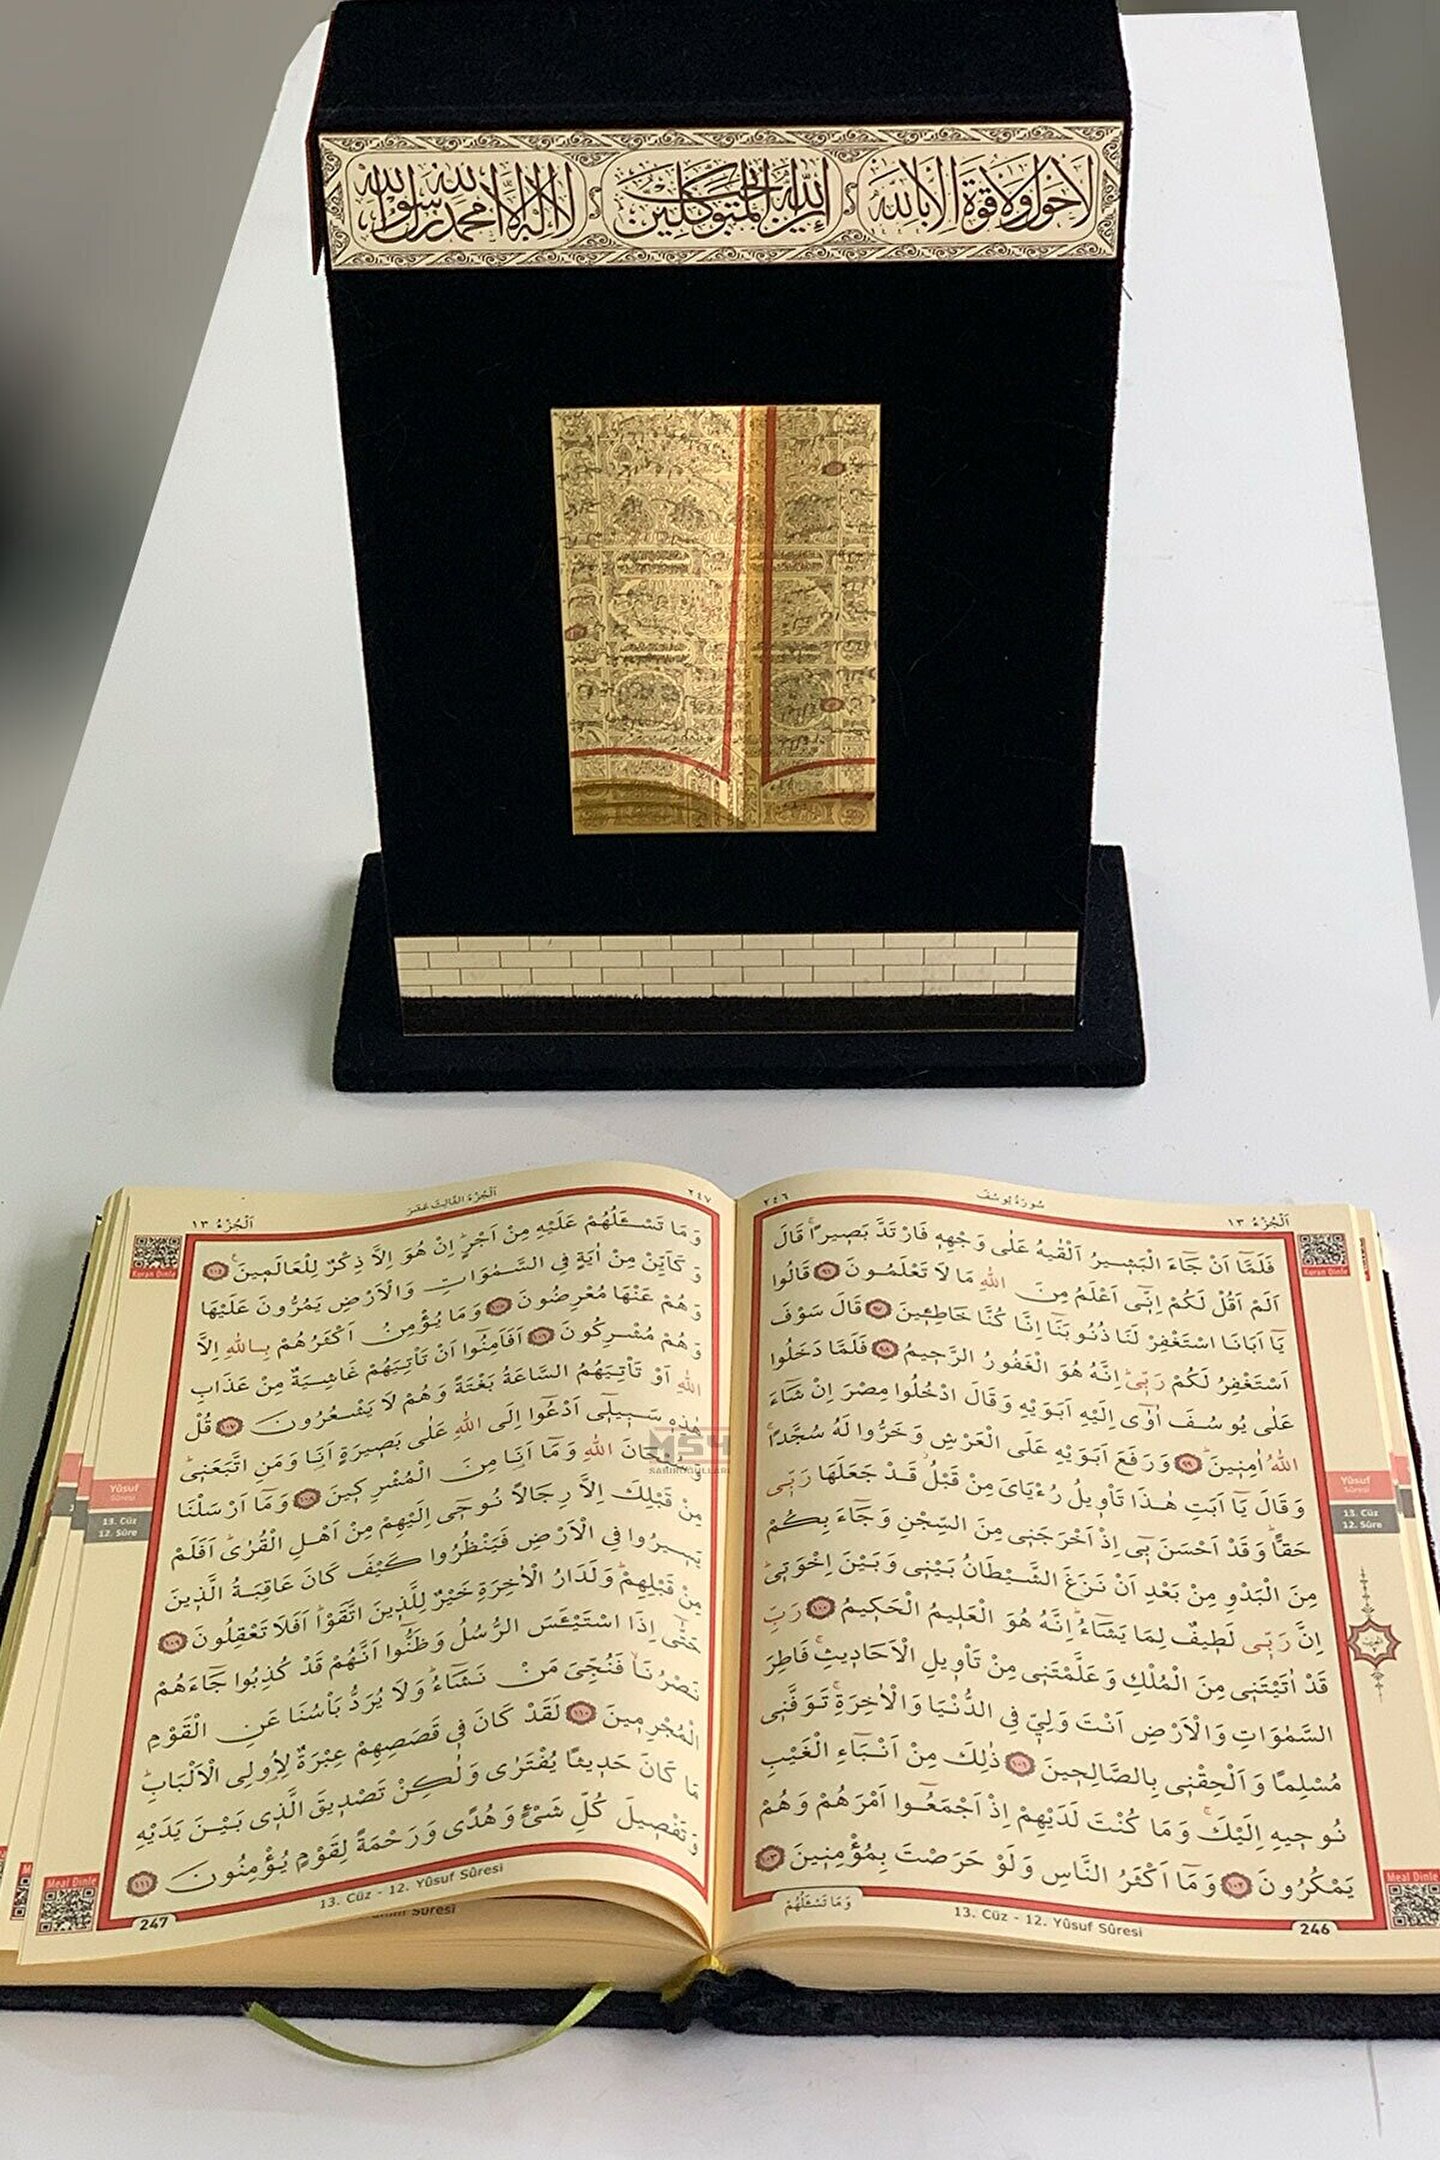 لَا حَوْلَ وَلَا قُوَّةَ اِلَّا بِاللّٰهِ
اِنَّ اللّٰهَ يُحِبُّ الْمُتَوَكِّلِينَ
لَا اِلٰهَ اِلَّا اللّٰهُ مُحَمَّدٌ رَسُولُ اللّٰهِ
اَلْجُزْءُ ١٣
سُورَةُ يُوسُفَ
٢٤٦
فَلَمَّٓا اَنْ جَٓاءَ الْبَش۪يرُ اَلْقٰيهُ عَلٰى وَجْهِه۪ فَارْتَدَّ بَص۪يرًاۚ قَالَ
اَلَمْ اَقُلْ لَكُمْ اِنّ۪ٓي اَعْلَمُ مِنَ اللّٰهِ مَا لَا تَعْلَمُونَ ٩٦ قَالُوا
يَٓا اَبَانَا اسْتَغْفِرْ لَنَا ذُنُوبَنَٓا اِنَّا كُنَّا خَاطِـ۪ٔينَ ٩٧ قَالَ سَوْفَ
اَسْتَغْفِرُ لَكُمْ رَبّ۪يۜ اِنَّهُ هُوَ الْغَفُورُ الرَّح۪يمُ ٩٨ فَلَمَّا دَخَلُوا
عَلٰى يُوسُفَ اٰوٰٓى اِلَيْهِ اَبَوَيْهِ وَقَالَ ادْخُلُوا مِصْرَ اِنْ شَٓاءَ
اللّٰهُ اٰمِن۪ينَۜ ٩٩ وَرَفَعَ اَبَوَيْهِ عَلَى الْعَرْشِ وَخَرُّوا لَهُ سُجَّدًاۚ
وَقَالَ يَٓا اَبَتِ هٰذَا تَأْو۪يلُ رُءْيَايَ مِنْ قَبْلُۘ قَدْ جَعَلَهَا رَبّ۪ي
حَقًّاۜ وَقَدْ اَحْسَنَ ب۪ٓي اِذْ اَخْرَجَن۪ي مِنَ السِّجْنِ وَجَٓاءَ بِكُمْ
مِنَ الْبَدْوِ مِنْ بَعْدِ اَنْ نَزَغَ الشَّيْطَانُ بَيْن۪ي وَبَيْنَ اِخْوَت۪يۜ
اِنَّ رَبّ۪ي لَط۪يفٌ لِمَا يَشَٓاءُۜ اِنَّهُ هُوَ الْعَل۪يمُ الْحَك۪يمُ ١٠٠ رَبِّ
قَدْ اٰتَيْتَن۪ي مِنَ الْمُلْكِ وَعَلَّمْتَن۪ي مِنْ تَأْو۪يلِ الْاَحَاد۪يثِۚ فَاطِرَ
السَّمٰوَاتِ وَالْاَرْضِ اَنْتَ وَلِيّ۪ فِي الدُّنْيَا وَالْاٰخِرَةِۚ تَوَفَّن۪ي
مُسْلِمًا وَاَلْحِقْن۪ي بِالصَّالِح۪ينَ ١٠١ ذٰلِكَ مِنْ اَنْبَٓاءِ الْغَيْبِ
نُوح۪يهِ اِلَيْكَۚ وَمَا كُنْتَ لَدَيْهِمْ اِذْ اَجْمَعُٓوا اَمْرَهُمْ وَهُمْ
يَمْكُرُونَ ١٠٢ وَمَٓا اَكْثَرُ النَّاسِ وَلَوْ حَرَصْتَ بِمُؤْمِن۪ينَ ١٠٣
وَمَا تَسْـَٔلُهُمْ
13. Cüz - 12. Yûsuf Sûresi
246
Kuran Dinle
Yûsuf
Sûresi
13. Cüz
12. Sûre
Meal Dinle
٢٤٧
اَلْجُزْءُ الثَّالِثَ عَشَرَ
اَلْجُزْءُ ١٣
وَمَا تَسْـَٔلُهُمْ عَلَيْهِ مِنْ اَجْرٍۜ اِنْ هُوَ اِلَّا ذِكْرٌ لِلْعَالَم۪ينَ۟ ١٠٤
وَكَاَيِّنْ مِنْ اٰيَةٍ فِي السَّمٰوَاتِ وَالْاَرْضِ يَمُرُّونَ عَلَيْهَا
وَهُمْ عَنْهَا مُعْرِضُونَ ١٠٥ وَمَا يُؤْمِنُ اَكْثَرُهُمْ بِاللّٰهِ اِلَّا
وَهُمْ مُشْرِكُونَ ١٠٦ اَفَاَمِنُٓوا اَنْ تَأْتِيَهُمْ غَاشِيَةٌ مِنْ عَذَابِ
اللّٰهِ اَوْ تَأْتِيَهُمُ السَّاعَةُ بَغْتَةً وَهُمْ لَا يَشْعُرُونَ ١٠٧ قُلْ
هٰذِه۪ سَب۪يل۪ٓي اَدْعُٓوا اِلَى اللّٰهِ عَلٰى بَص۪يرَةٍ اَنَا۬ وَمَنِ اتَّبَعَن۪يۜ
اللّٰهِ وَمَٓا اَنَا۬ مِنَ الْمُشْرِك۪ينَ ١٠٨ وَمَٓا اَرْسَلْنَا
مِنْ قَبْلِكَ اِلَّا رِجَالًا نُوح۪ٓي اِلَيْهِمْ مِنْ اَهْلِ الْقُرٰىۜ اَفَلَمْ
يَس۪يرُوا فِي الْاَرْضِ فَيَنْظُرُوا كَيْفَ كَانَ عَاقِبَةُ الَّذ۪ينَ
مِنْ قَبْلِهِمْۜ وَلَدَارُ الْاٰخِرَةِ خَيْرٌ لِلَّذ۪ينَ اتَّقَوْاۜ اَفَلَا تَعْقِلُونَ ١٠٩
حَتّٰٓى اِذَا اسْتَيْـَٔسَ الرُّسُلُ وَظَنُّٓوا اَنَّهُمْ قَدْ كُذِبُوا جَٓاءَهُمْ
نَصْرُنَاۙ فَنُجِّيَ مَنْ نَشَٓاءُۜ وَلَا يُرَدُّ بَأْسُنَا عَنِ الْقَوْمِ
الْمُجْرِم۪ينَ ١١٠ لَقَدْ كَانَ ف۪ي قَصَصِهِمْ عِبْرَةٌ لِاُو۬لِي الْاَلْبَابِۜ
مَا كَانَ حَد۪يثًا يُفْتَرٰى وَلٰكِنْ تَصْد۪يقَ الَّذ۪ي بَيْنَ يَدَيْهِ
وَتَفْص۪يلَ كُلِّ شَيْءٍ وَهُدًى وَرَحْمَةً لِقَوْمٍ يُؤْمِنُونَ ١١١
13. Cüz - 12. Yûsuf Sûresi
247
Kuran Dinle
Yûsuf
Sûresi
13. Cüz
12. Sûre
Meal Dinle
Sûresi